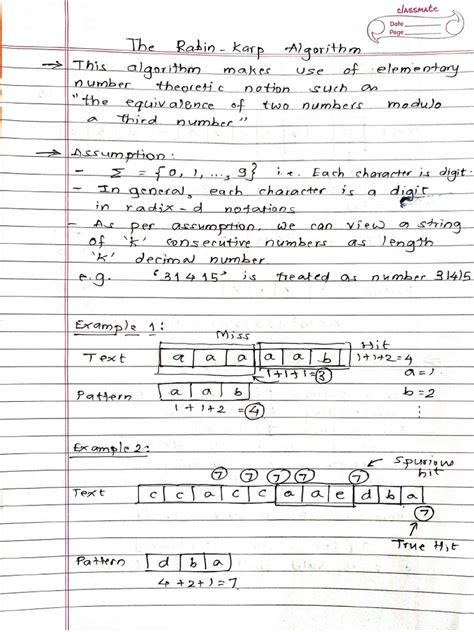 classmate
Date
Page
The Rabin-Karp Algorithm
→ This algorithm makes use of elementary
number theoretic notion such as
"the equivalence of two numbers modulo
a third number"
→ Assumption:
- Σ = {0, 1, ..., 9} i.e. Each character is digit.
- In general, each character is a digit
in radix-d notations
- As per assumption, we can view a string
of 'k' consecutive numbers as length
'k' decimal number
e.g. '31415' is treated as number 31415
Example 1:
Miss
Hit
Text a a a a a b 1+1+2=4
1+1+1=3 a=1
Pattern a a b b=2
1+1+2=4
Example 2:
Spurious
hit
7 7 7 7 7
Text c c a c c a a e d b a
7
True Hit
Pattern d b a
4+2+1=7